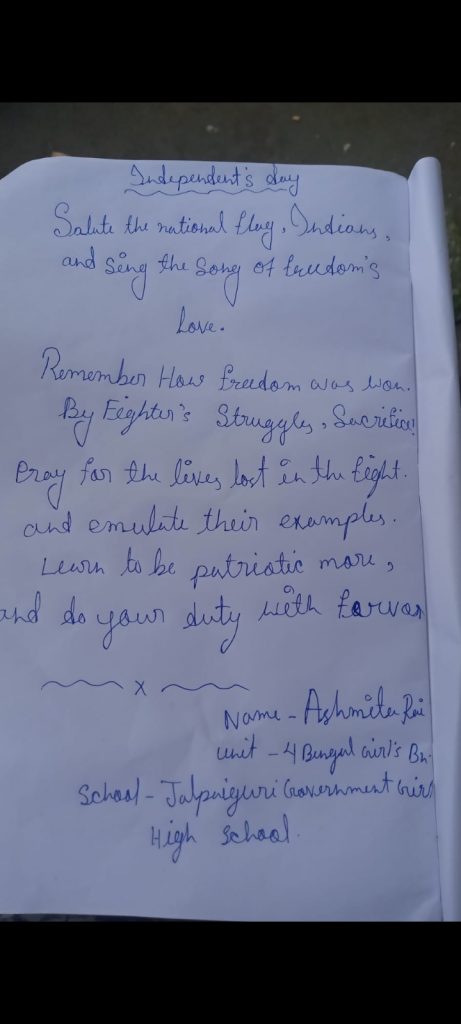 Independent's day
Salute the national flag, Indians,
and sing the song of freedom's
Love.
Remember How freedom was won.
By Fighter's Struggles, Sacrifice!
Pray for the lives lost in the fight.
and emulate their examples.
Learn to be patriotic more,
and do your duty with farvor
x
Name - Ashmita Rai
unit - 4 Bengal Girl's Bn.
School - Jalpaiguri Government Girl
High School.